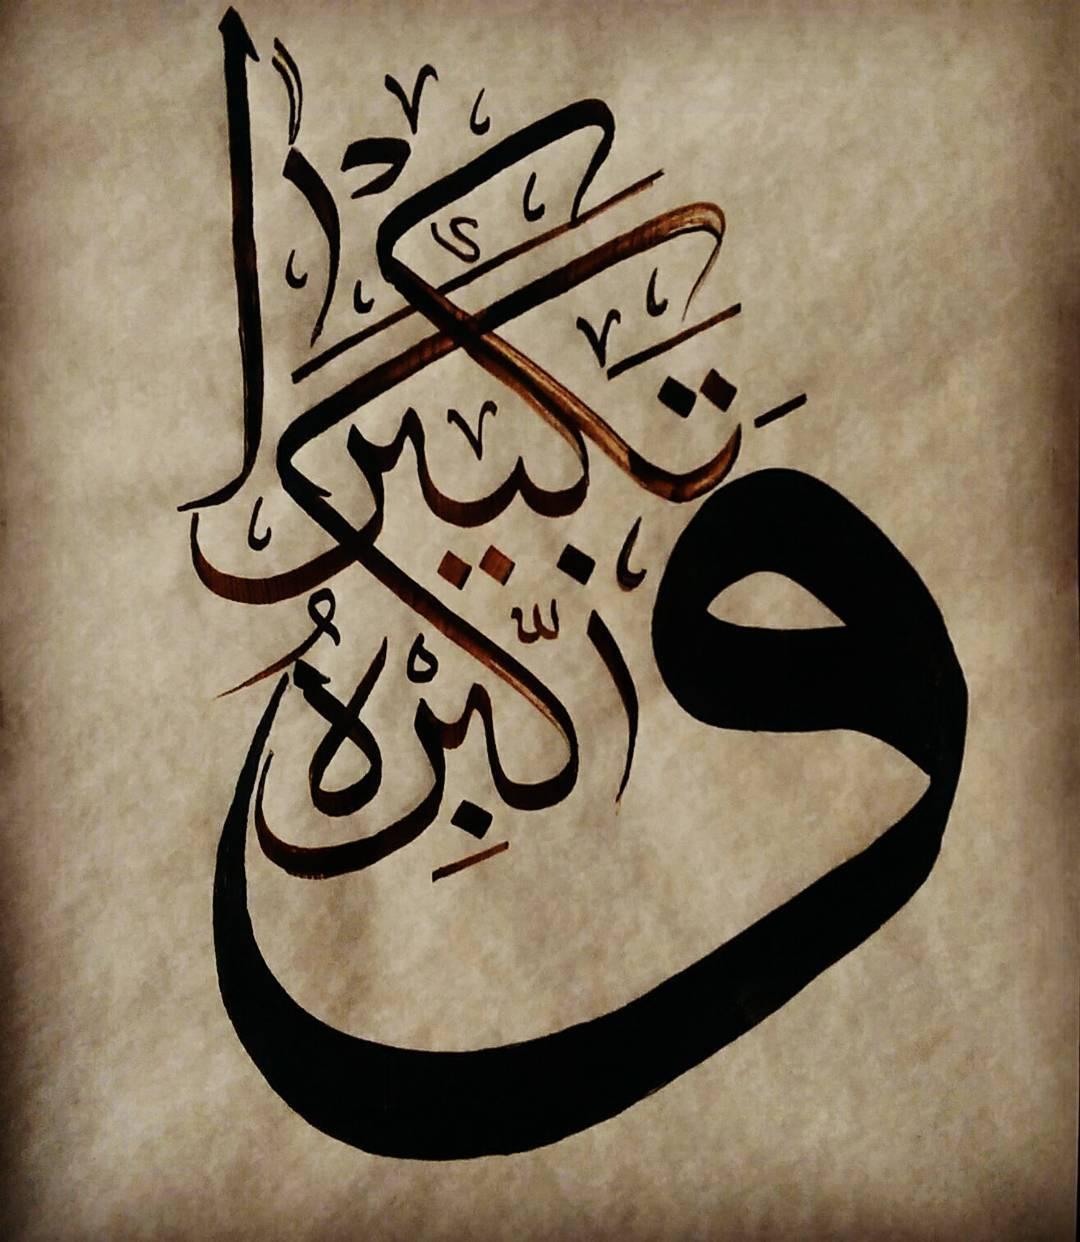 وَكَبِّرْهُ تَكْبِيرًا